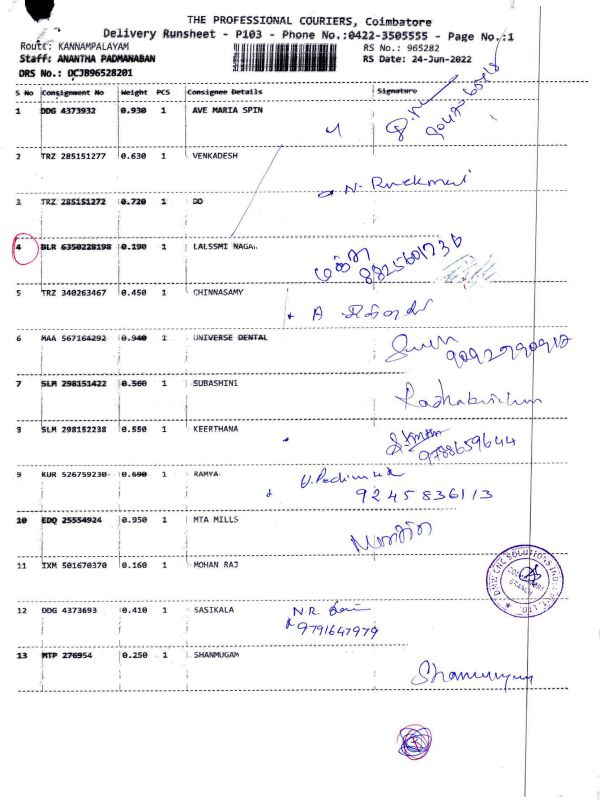 THE PROFESSIONAL COURIERS, Coimbatore
Delivery Runsheet - P103 - Phone No.:0422-3505555 - Page No.:1
Route: KANNAMPALAYAM RS No.: 965282
Staff: ANANTHA PADMANABAN RS Date: 24-Jun-2022
DRS No.: DCJB96528201
S No Consignment No Weight PCS Consignee Details Signature
1 DDG 4373932 0.930 1 AVE MARIA SPIN
2 TRZ 285151277 0.630 1 VENKADESH
N. Rukmani
3 TRZ 285151272 0.720 1 DO
4 BLR 6350228198 0.190 1 LALSSMI NAGAR
8825601736
5 TRZ 340263467 0.450 1 CHINNASAMY
A
6 MAA 567164292 0.940 1 UNIVERSE DENTAL
9092790912
7 SLM 298151422 0.560 1 SUBASHINI
8 SLM 298152238 0.550 1 KEERTHANA
9788659644
9 KUR 526759230 0.690 1 RAMYA
9245836113
10 EDQ 25554924 0.950 1 MTA MILLS
11 IXM 501670370 0.160 1 MOHAN RAJ
12 DDG 4373693 0.410 1 SASIKALA N.R.
9791647979
13 MTP 276954 0.250 1 SHANMUGAM